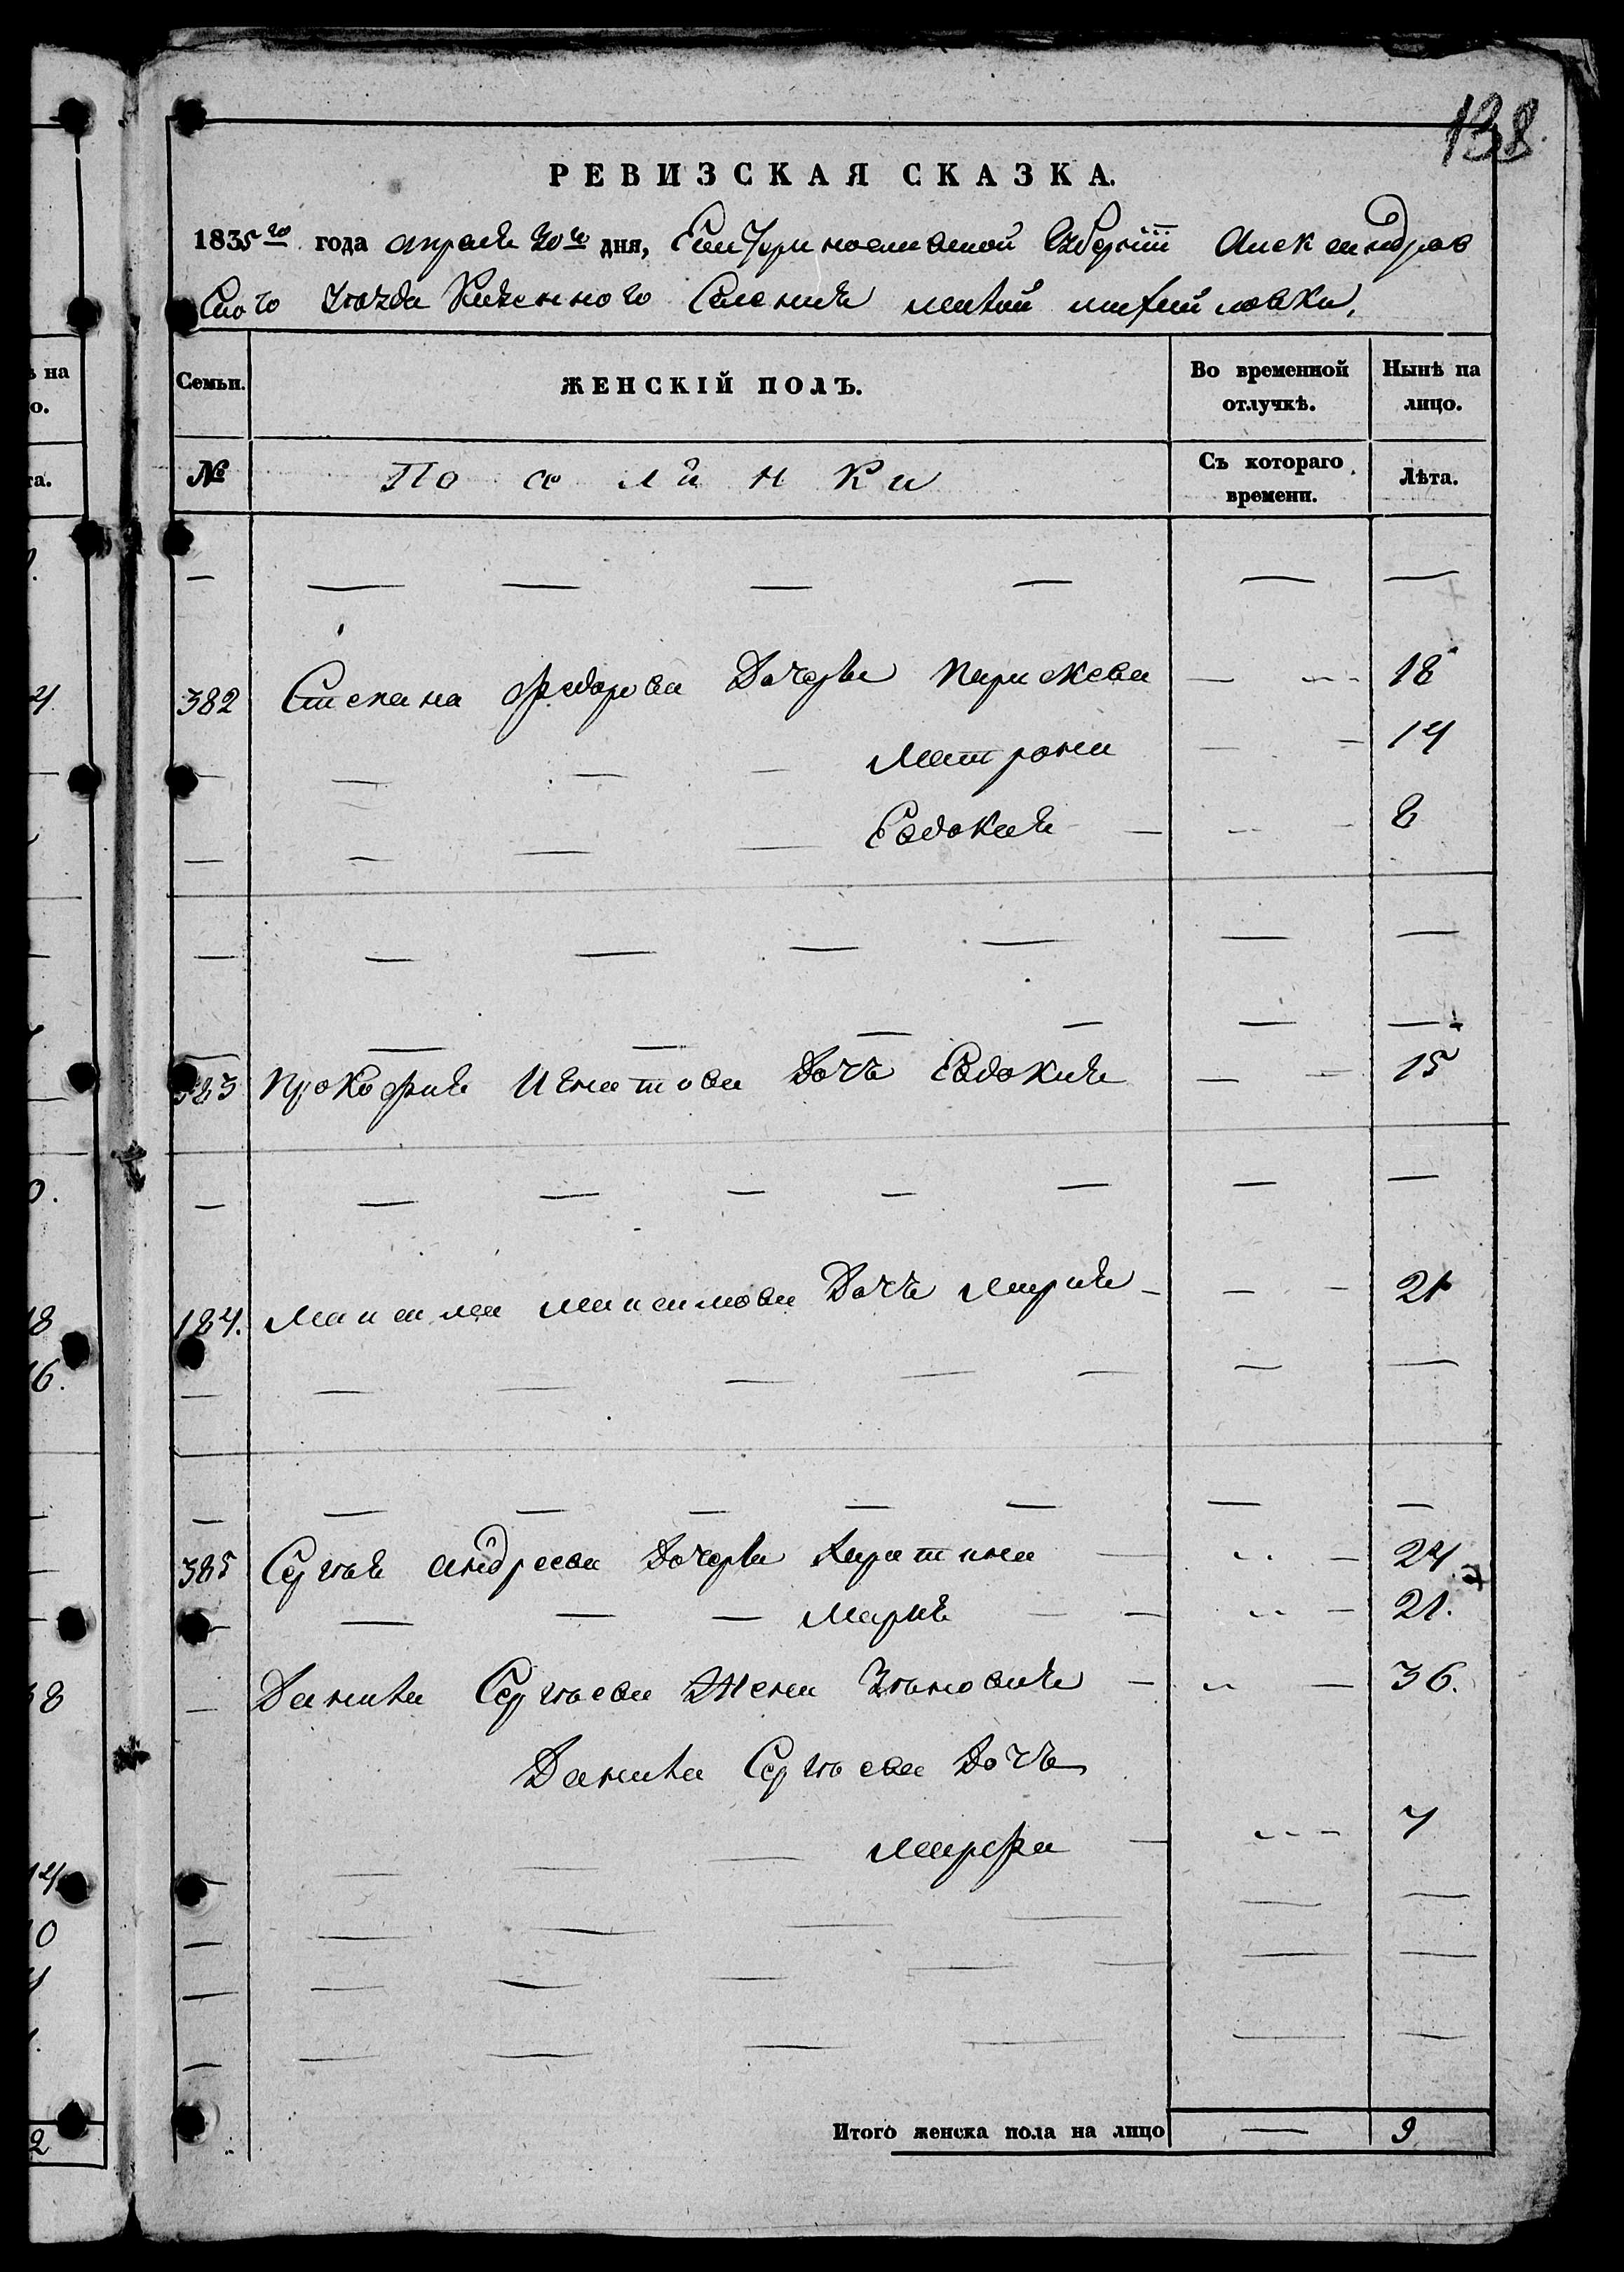 138.
РЕВИЗСКАЯ СКАЗКА.
1835го года апреля 20го дня, Екатериносливской Губерніи Александров
ского Уѣзда Казенного Селенія малой михайловки,
Семьи. ЖЕНСКІЙ ПОЛЪ. Во временной отлучкѣ. Нынѣ на лицо.
№ Поселянки Съ котораго времени. Лѣта.
— — — — — — —
382 Степана Федорова Дочери Параскева — 18
— — — Матрона — 14
— — — — Евдокия — 8
— — — — — — —
— — — — — — —
383 Прокофия Игнатова Дочь Евдокия — 15
— — — — — — — —
184. Максима Максимова Дочь Мария — 21
— — — — — — — —
— — — — — — — —
385 Сергѣя Андреева Дочери — 24.
— — — Мария — 21.
— Данила Сергѣева Жена — 36.
Данила Сергѣева Дочь
— — — — Марфа — 7
— — — — — —
— — — — — — —
— — — — — — —
Итого женска пола на лицо — 9
ѣ на
о.
та.
4
0.
18
16.
38
14
10
4
2